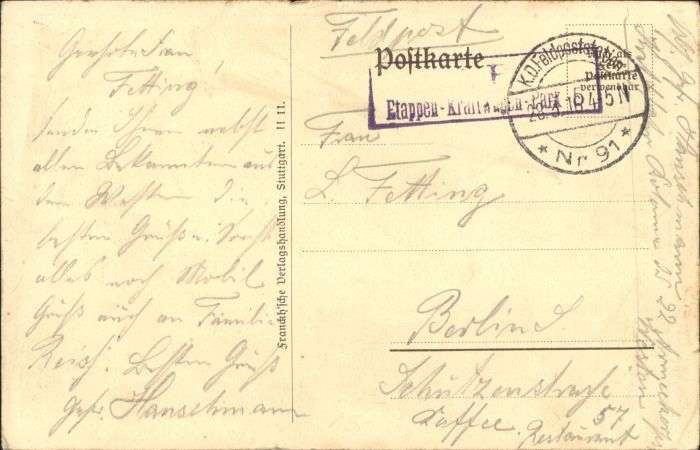 Geehrte Frau
Fetting!
senden Ihnen nebst
allen Bekannten aus
dem Westen die
besten Grüße. Sonst
alles noch Mobil
Gruß auch an Familie
Besten Gruß
Gefr. Hanschmann
Franckh'sche Verlagshandlung, Stuttgart. II 11.
Feldpost
Postkarte
Etappen-Kraftwagen-Park 5
K.D.Feldpoststation
Nr 91
Postkarte
verwendbar
Frau
L. Fetting
Berlin S.
Schützenstraße
57
Kaffee Restaurant
Hanschmann
Kolonne
92
Westen